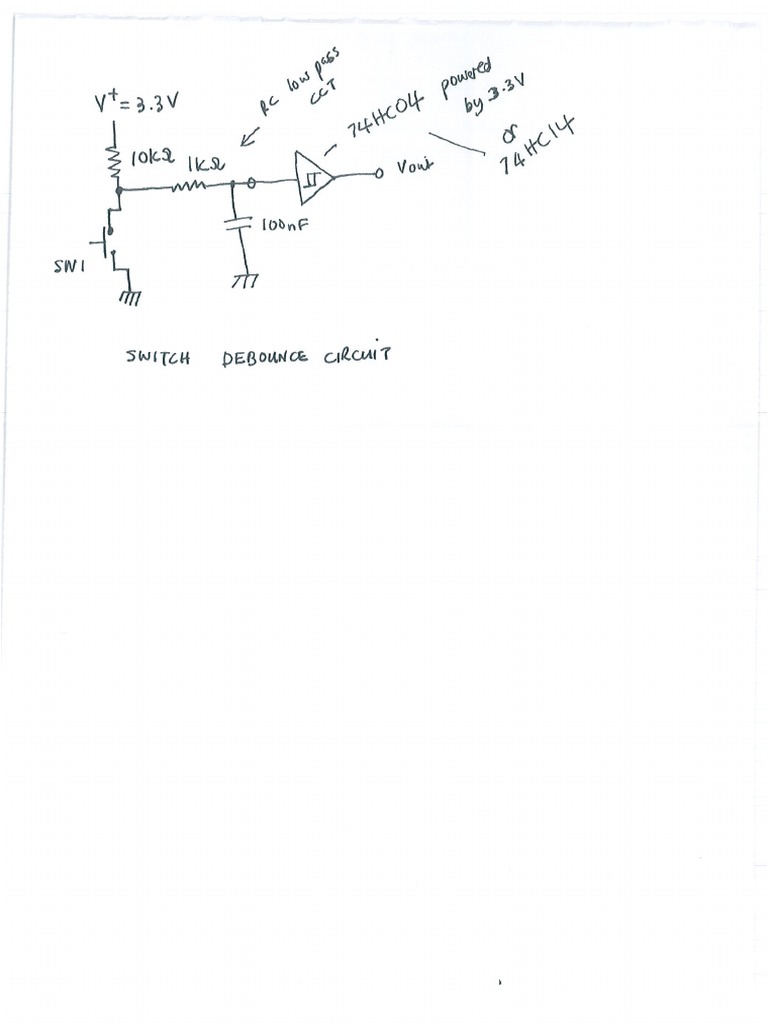 RC low pass
CCT
74HC04 powered
by 3.3V
or
74HC14
V+ = 3.3V
10kΩ
1kΩ
Vout
100nF
SW1
SWITCH DEBOUNCE CIRCUIT